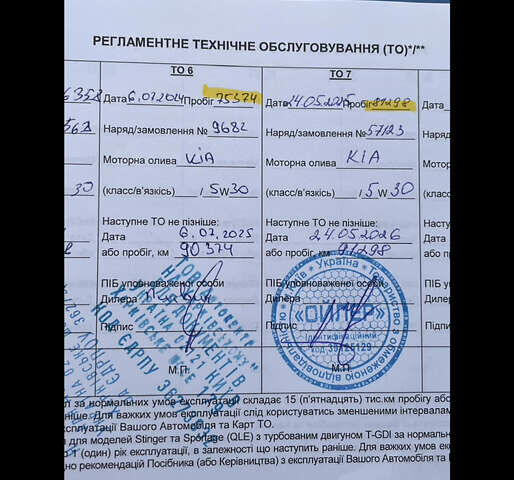 РЕГЛАМЕНТНЕ ТЕХНІЧНЕ ОБСЛУГОВУВАННЯ (ТО)*/**
ТО 6
ТО 7
6358 Дата 6.07.2024 Пробіг 75374 Дата 24.05.2025 Пробіг 81298 Дата
Наряд/замовлення № 9682 Наряд/замовлення № 57123 Наряд/з
Моторна олива KIA Моторна олива KIA Моторна
30 (класс/в'язкість) / 5W30 (класс/в'язкість) / 5W30 (класс/в
Наступне ТО не пізніше: Наступне ТО не пізніше: Наступне
Дата 6.07.2025 Дата 24.05.2026 Дата
або пробіг, км 90374 або пробіг, км 91298 або проб
ПІБ уповноваженої особи ПІБ уповноваженої особи ПІБ упов
Дилера Дилера Дилера
Підпис Підпис Підпис
М.П. М.П.
Україна
м. Київ
Товариство з обмеженою відповідальністю
«ОЙЛЕР»
Ідентифікаційний
код
ДЛЯ
ДОКУМЕНТІВ
КОД ЄДРПОУ
за нормальних умов експлуатації складає 15 (п'ятнадцять) тис.км пробігу або
раніше. Для важких умов експлуатації слід користуватись зменшеними інтервалам
експлуатації Вашого Автомобіля та Карт ТО.
для моделей Stinger та Sportage (QLE) з турбованим двигуном T-GDI за нормальн
1 (один) рік експлуатації, в залежності що наступить раніше. Для важких умов е
рекомендації Посібника (або Керівництва) з експлуатації Вашого Автомобіля та